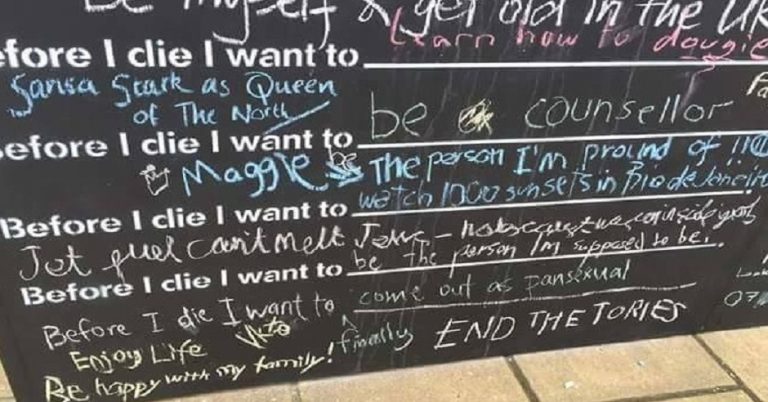 Be myself & get old in the UK
efore I die I want to Learn how to dougie
Sansa Stark as Queen
of The North
be a counsellor
efore I die I want to
Maggie be The person I'm proud of !!
Before I die I want to watch 1000 sunsets in Rio de Janeiro
Jet fuel can't melt
be the person I'm supposed to be.
Before I die I want to
Before I die I want to come out as pansexual
finally
Enjoy Life
END THE TORIES
Be happy with my family!